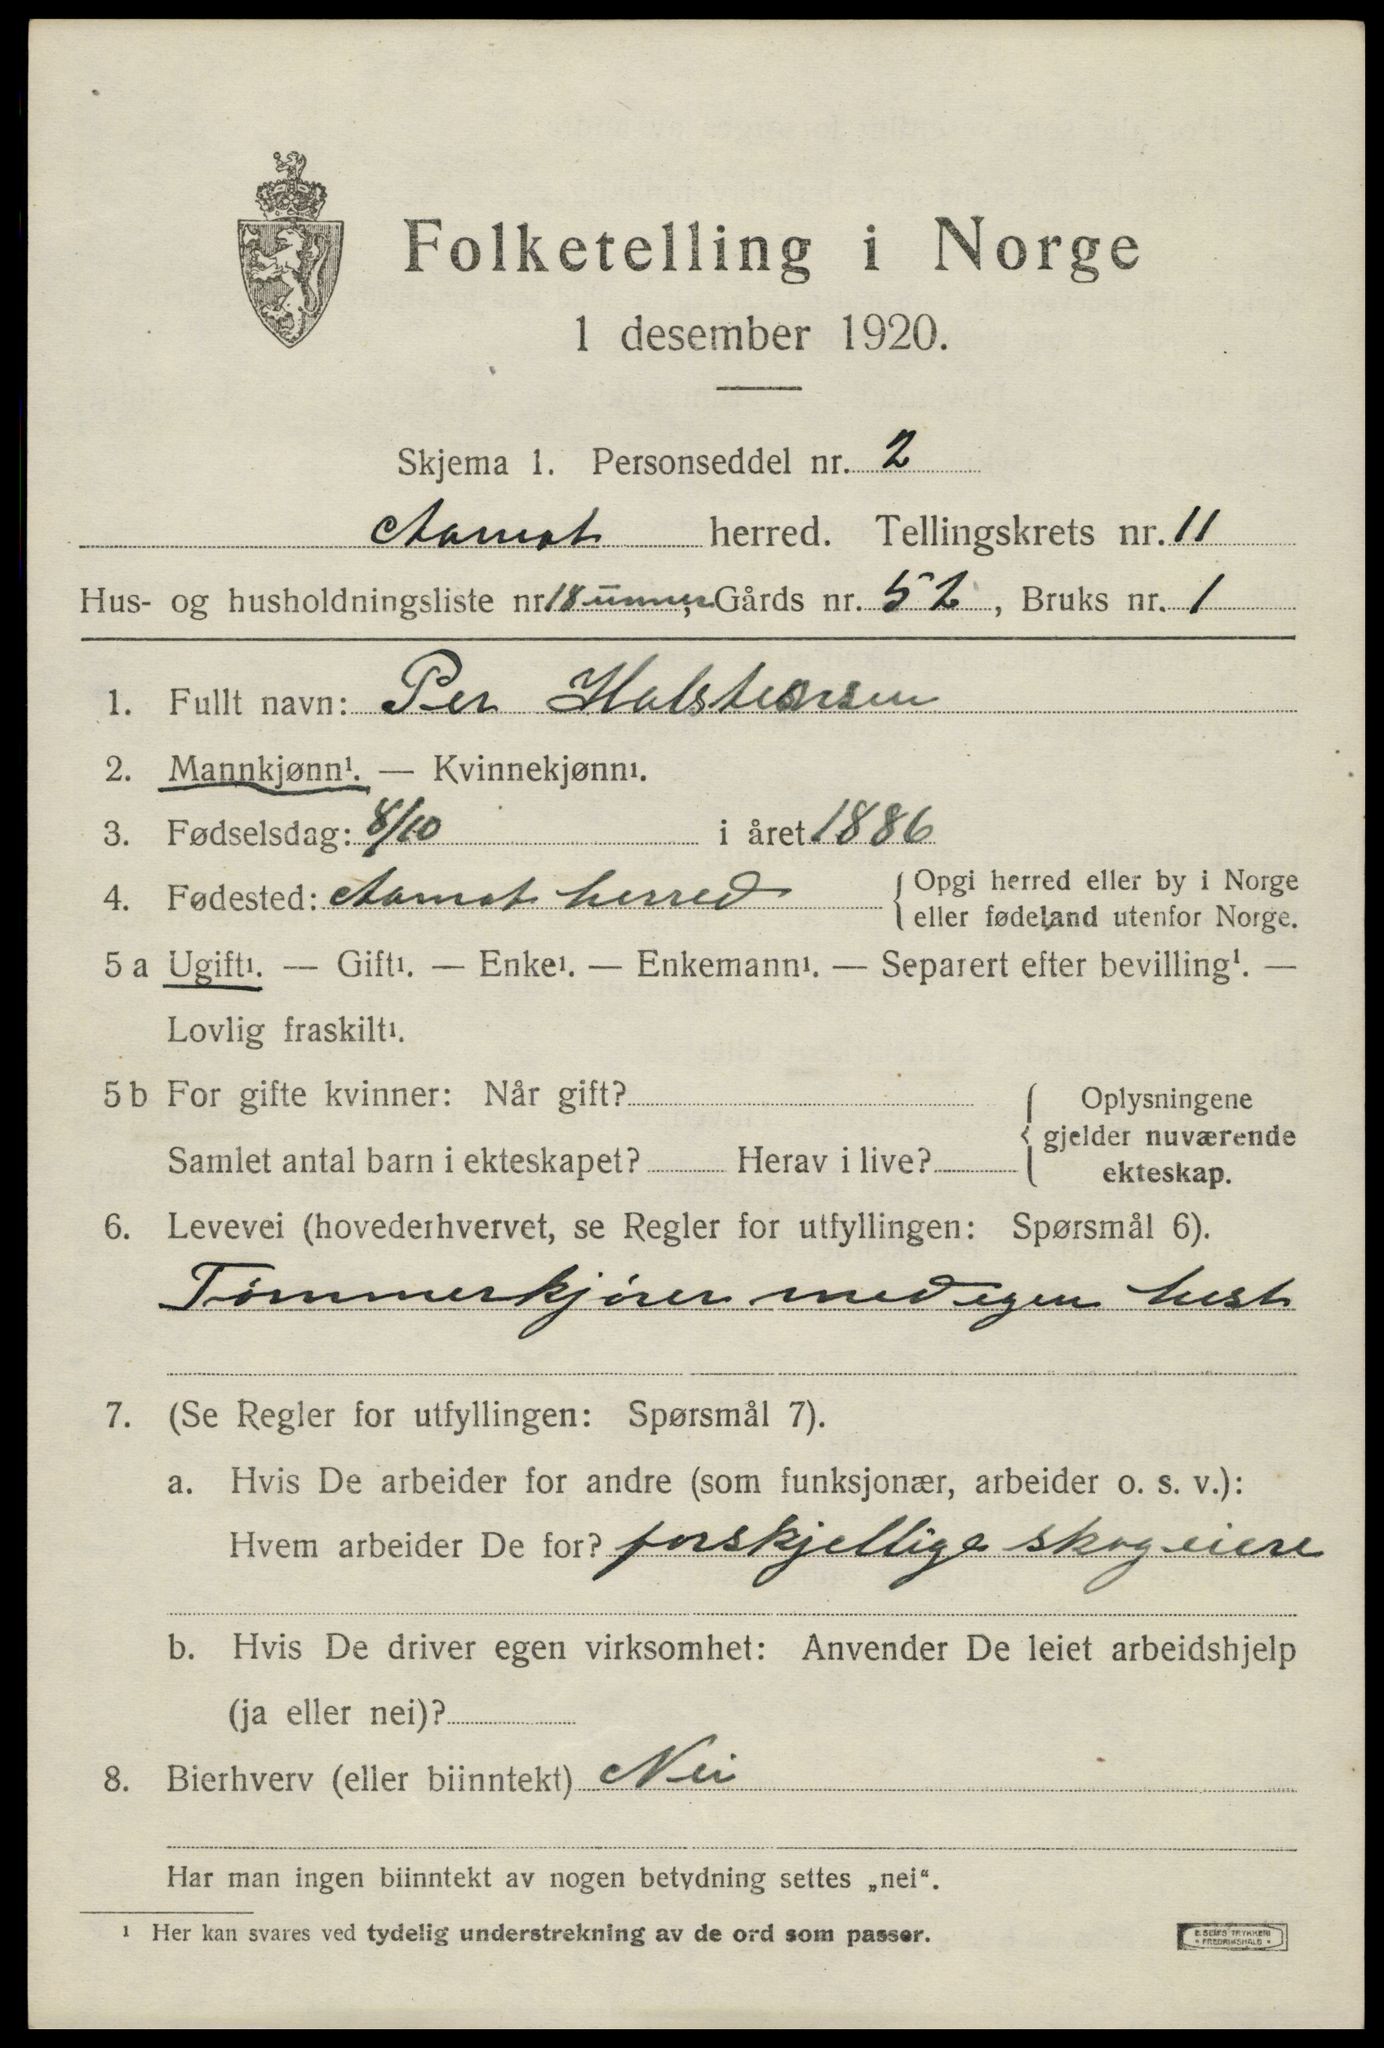 Folketelling i Norge
1 desember 1920.
Skjema 1. Personseddel nr. 2
Aamot herred. Tellingskrets nr. 11
Hus- og husholdningsliste nr. 18 , Gårds nr. 52, Bruks nr. 1
1. Fullt navn: Per Halstensen
2. Mannkjønn¹. — Kvinnekjønn¹.
3. Fødselsdag: 8/10 i året 1886
4. Fødested: Aamot herred { Opgi herred eller by i Norge
eller fødeland utenfor Norge.
5 a Ugift¹. — Gift¹. — Enke¹. — Enkemann¹. — Separert efter bevilling¹. —
Lovlig fraskilt¹.
5 b For gifte kvinner: Når gift? { Oplysningene
gjelder nuværende
Samlet antal barn i ekteskapet? Herav i live? ekteskap.
6. Levevei (hovederhvervet, se Regler for utfyllingen: Spørsmål 6).
Tømmerkjører med egen hest
7. (Se Regler for utfyllingen: Spørsmål 7).
a. Hvis De arbeider for andre (som funksjonær, arbeider o. s. v.):
Hvem arbeider De for? forskjellige skogeiere
b. Hvis De driver egen virksomhet: Anvender De leiet arbeidshjelp
(ja eller nei)?
8. Bierhverv (eller biinntekt) Nei
Har man ingen biinntekt av nogen betydning settes „nei“.
¹ Her kan svares ved tydelig understrekning av de ord som passer.
E. SEMS TRYKKERI
• FREDRIKSHALD •